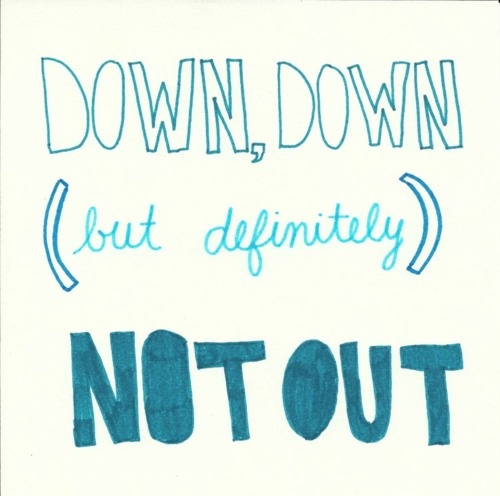 DOWN, DOWN
(but definitely)
NOT OUT